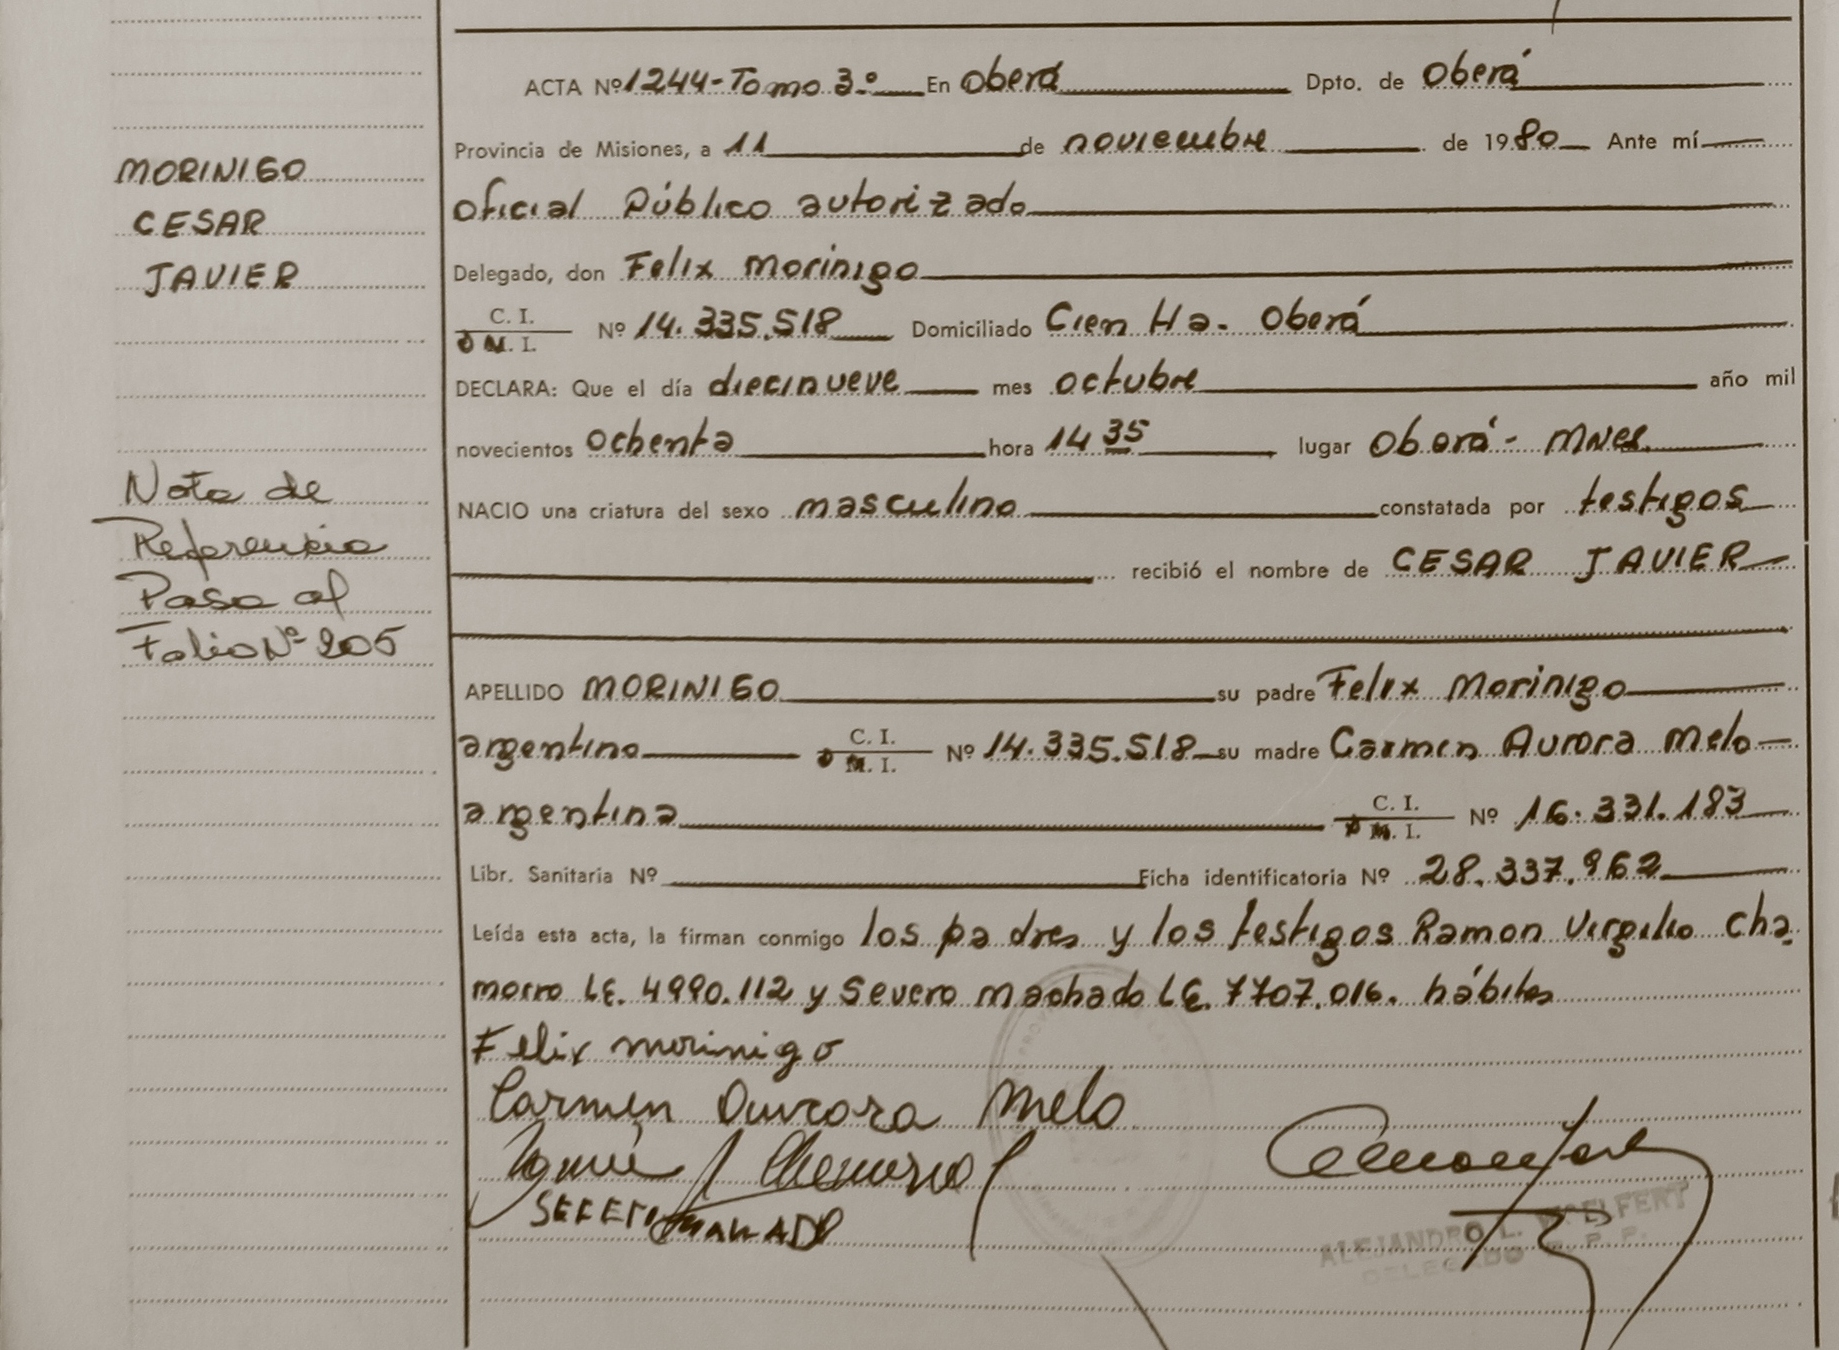 MORINIGO
CESAR
JAVIER
Nota de
Referencia
Pasa al
Folio Nº 205
ACTA Nº 1244-Tomo 3º En Oberá Dpto. de Oberá
Provincia de Misiones, a 11 de noviembre de 1980 Ante mí
Oficial Público autorizado
Delegado, don Felix Morinigo
C. I.
D M. I. Nº 14.335.518 Domiciliado Cien Ha. Oberá
DECLARA: Que el día diecinueve mes octubre año mil
novecientos ochenta hora 14 35 lugar Oberá - Mnes.
NACIO una criatura del sexo masculino constatada por testigos
recibió el nombre de CESAR JAVIER
APELLIDO MORINIGO su padre Felix Morinigo
argentino C. I. D M. I. Nº 14.335.518 su madre Carmen Aurora Melo
argentina C. I. D M. I. Nº 16.331.183
Libr. Sanitaria Nº Ficha identificatoria Nº 28.337.962
Leída esta acta, la firman conmigo los padres y los testigos Ramon Virgilio Cha
morro LE. 4990.112 y Severo Machado LE. 7707.016. hábiles
Felix morinigo
Carmen Aurora Melo
ALEJANDRO L.
DELEGADO